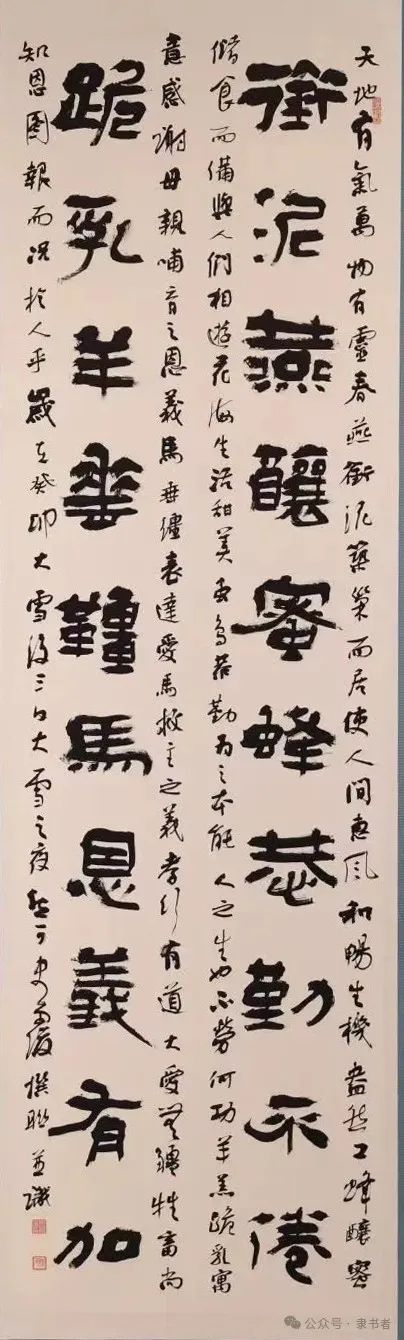 天地有氣萬物有靈春燕銜泥築巢而居使人間惠風和暢生機盎然工蜂釀蜜
銜泥燕釀蜜蜂恭勤不倦
儲食而備與人們相遊花海生活甜美蟲鳥若勤為之本能人之生也不勞何功羊羔跪乳寓
意感謝母親哺育之恩義馬垂韁表達愛馬救主之義孝行有道大愛無疆牲畜尚
跪乳羊垂韁馬恩義有加
知恩圖報而況於人乎歲在癸卯大雪後三日大雪之夜撰聯並識
公众号·隶书者